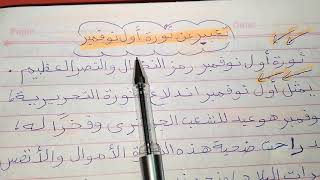 تعبير عن ثورة أول نوفمبر
ثورة أول نوفمبر رمز النضال والنصر العظيم.
يمثل أول نوفمبر اندلاع ثورة التحريرية
نوفمبر هو عيد للشعب الجزائري وفخرا له،
راحت ضحية هذه الأموال والأنفس